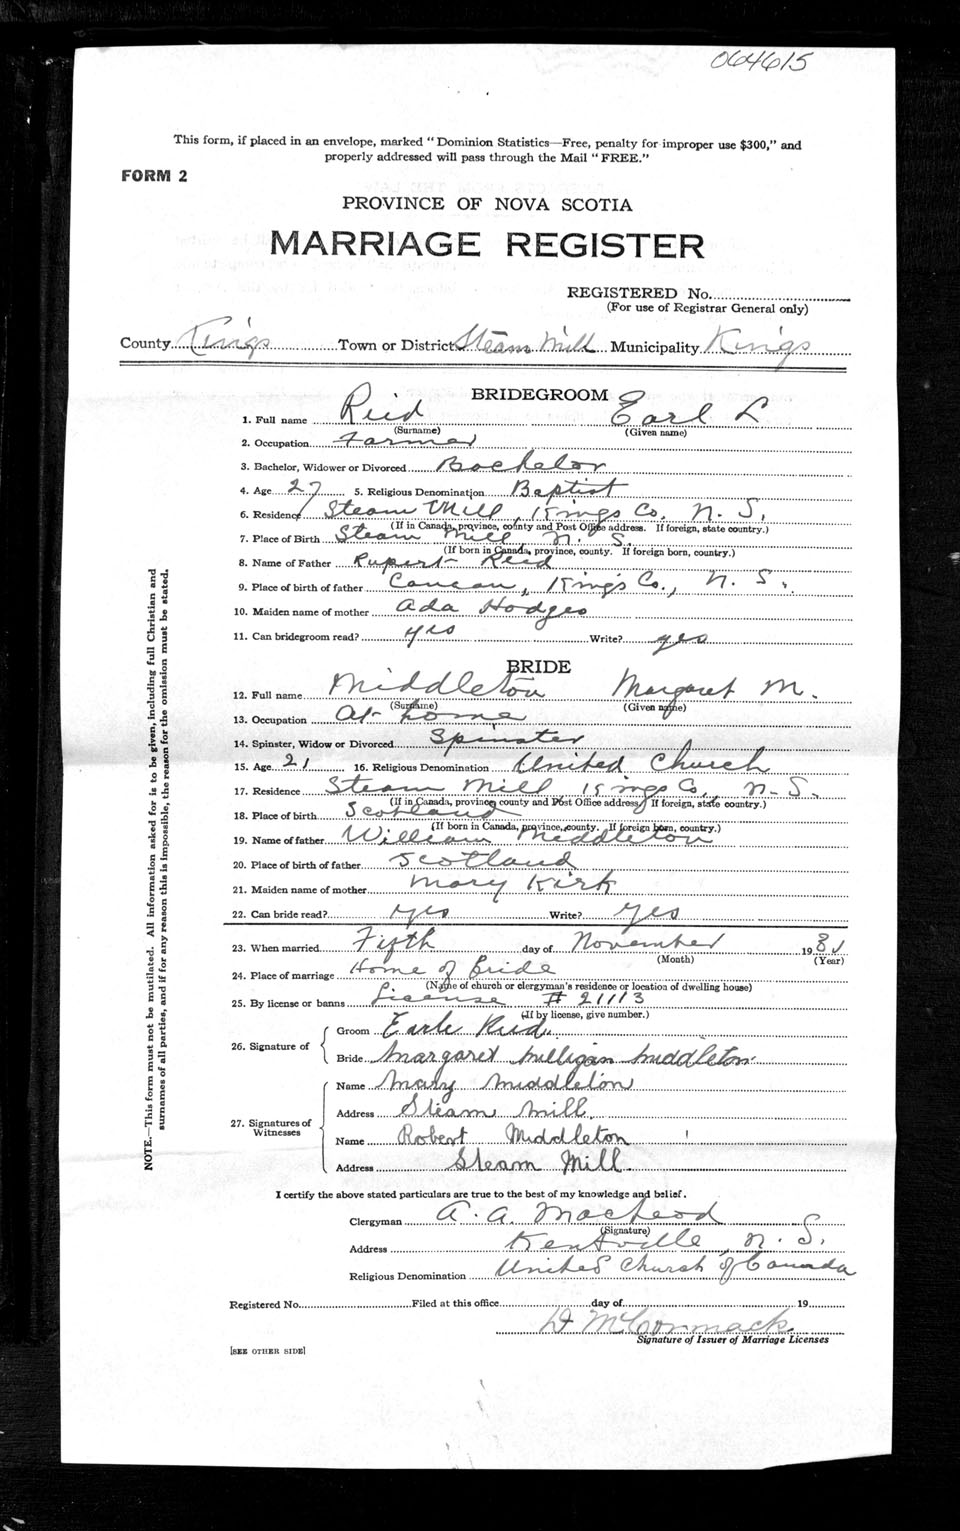 064615
This form, if placed in an envelope, marked "Dominion Statistics—Free, penalty for improper use $300," and
properly addressed will pass through the Mail "FREE."
FORM 2
PROVINCE OF NOVA SCOTIA
MARRIAGE REGISTER
REGISTERED No.
(For use of Registrar General only)
County Kings Town or District Steam Mill Municipality Kings
BRIDEGROOM
1. Full name Reid Earl L
(Surname) (Given name)
2. Occupation Farmer
3. Bachelor, Widower or Divorced Bachelor
4. Age 27 5. Religious Denomination Baptist
6. Residence Steam Mill, Kings Co. N. S.
(If in Canada, province, county and Post Office address. If foreign, state country.)
7. Place of Birth Steam Mill, N. S.
(If born in Canada, province, county. If foreign born, country.)
8. Name of Father Rupert Reid
9. Place of birth of father Canaan, Kings Co., N. S.
10. Maiden name of mother Ada Hodges
11. Can bridegroom read? yes Write? yes
BRIDE
12. Full name Middleton Margaret M.
(Surname) (Given name)
13. Occupation At home
14. Spinster, Widow or Divorced Spinster
15. Age 21 16. Religious Denomination United Church
17. Residence Steam Mill, Kings Co., N. S.
(If in Canada, province, county and Post Office address. If foreign, state country.)
18. Place of birth Scotland
(If born in Canada, province, county. If foreign born, country.)
19. Name of father William Middleton
20. Place of birth of father Scotland
21. Maiden name of mother Mary Kirk
22. Can bride read? yes Write? yes
23. When married Fifth day of November 1931
(Month) (Year)
24. Place of marriage Home of Bride
(Name of church or clergyman's residence or location of dwelling house)
25. By license or banns License # 21113
(If by license, give number.)
26. Signature of Groom Earle Reid
Bride Margaret Milligan Middleton
27. Signatures of Witnesses Name Mary Middleton
Address Steam Mill
Name Robert Middleton
Address Steam Mill
I certify the above stated particulars are true to the best of my knowledge and belief.
Clergyman A. A. MacLeod
(Signature)
Address Kentville, N. S.
Religious Denomination United Church of Canada
Registered No. Filed at this office day of 19
McCormack
Signature of Issuer of Marriage Licenses
[SEE OTHER SIDE]
NOTE.—This form must not be mutilated. All information asked for is to be given, including full Christian and
surnames of all parties, and if for any reason this is impossible, the reason for the omission must be stated.